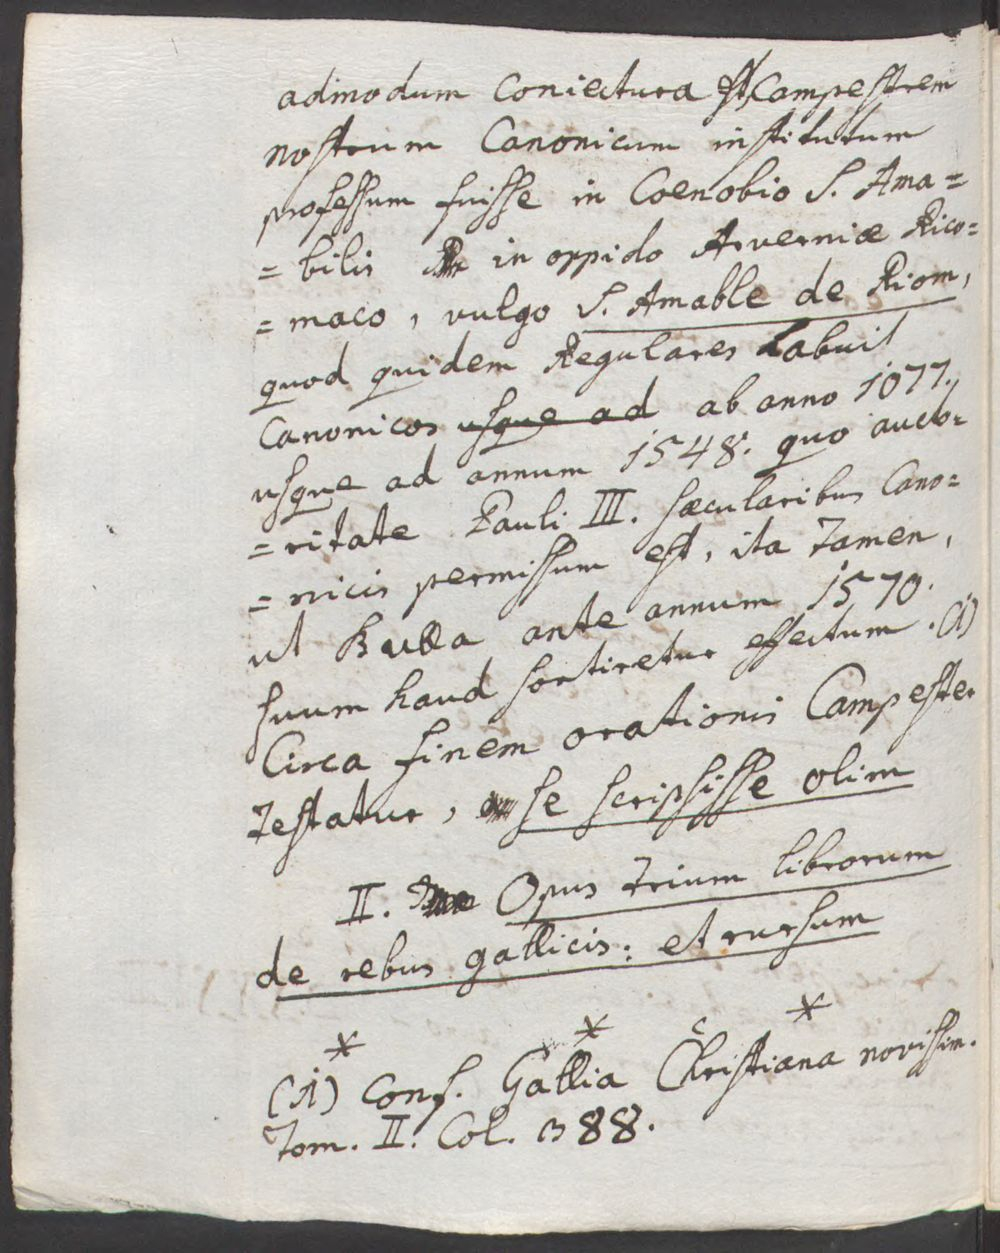 admodum Coniectura est, Campestrem
nostrum Canonicum institutum
professum fuisse in Coenobio S. Ama=
=bilis in oppido Arverniæ Rico=
=maco, vulgo S. Amable de Riom,
quod quidem Regulares habuit
Canonicos usque ad ab anno 1077.
usque ad annum 1548. quo aucto=
=ritate Pauli III. sæcularibus Cano=
=nicis permissum est, ita tamen,
ut Bulla ante annum 1570.
suum haud sortiretur effectum. (1)
Circa finem orationis Campester
testatur, se scripsisse olim
II. Opus trium librorum
de rebus gallicis: et rursum
* * *
(1) Conf. Gallia Christiana novissim.
Tom. II. Col. 388.